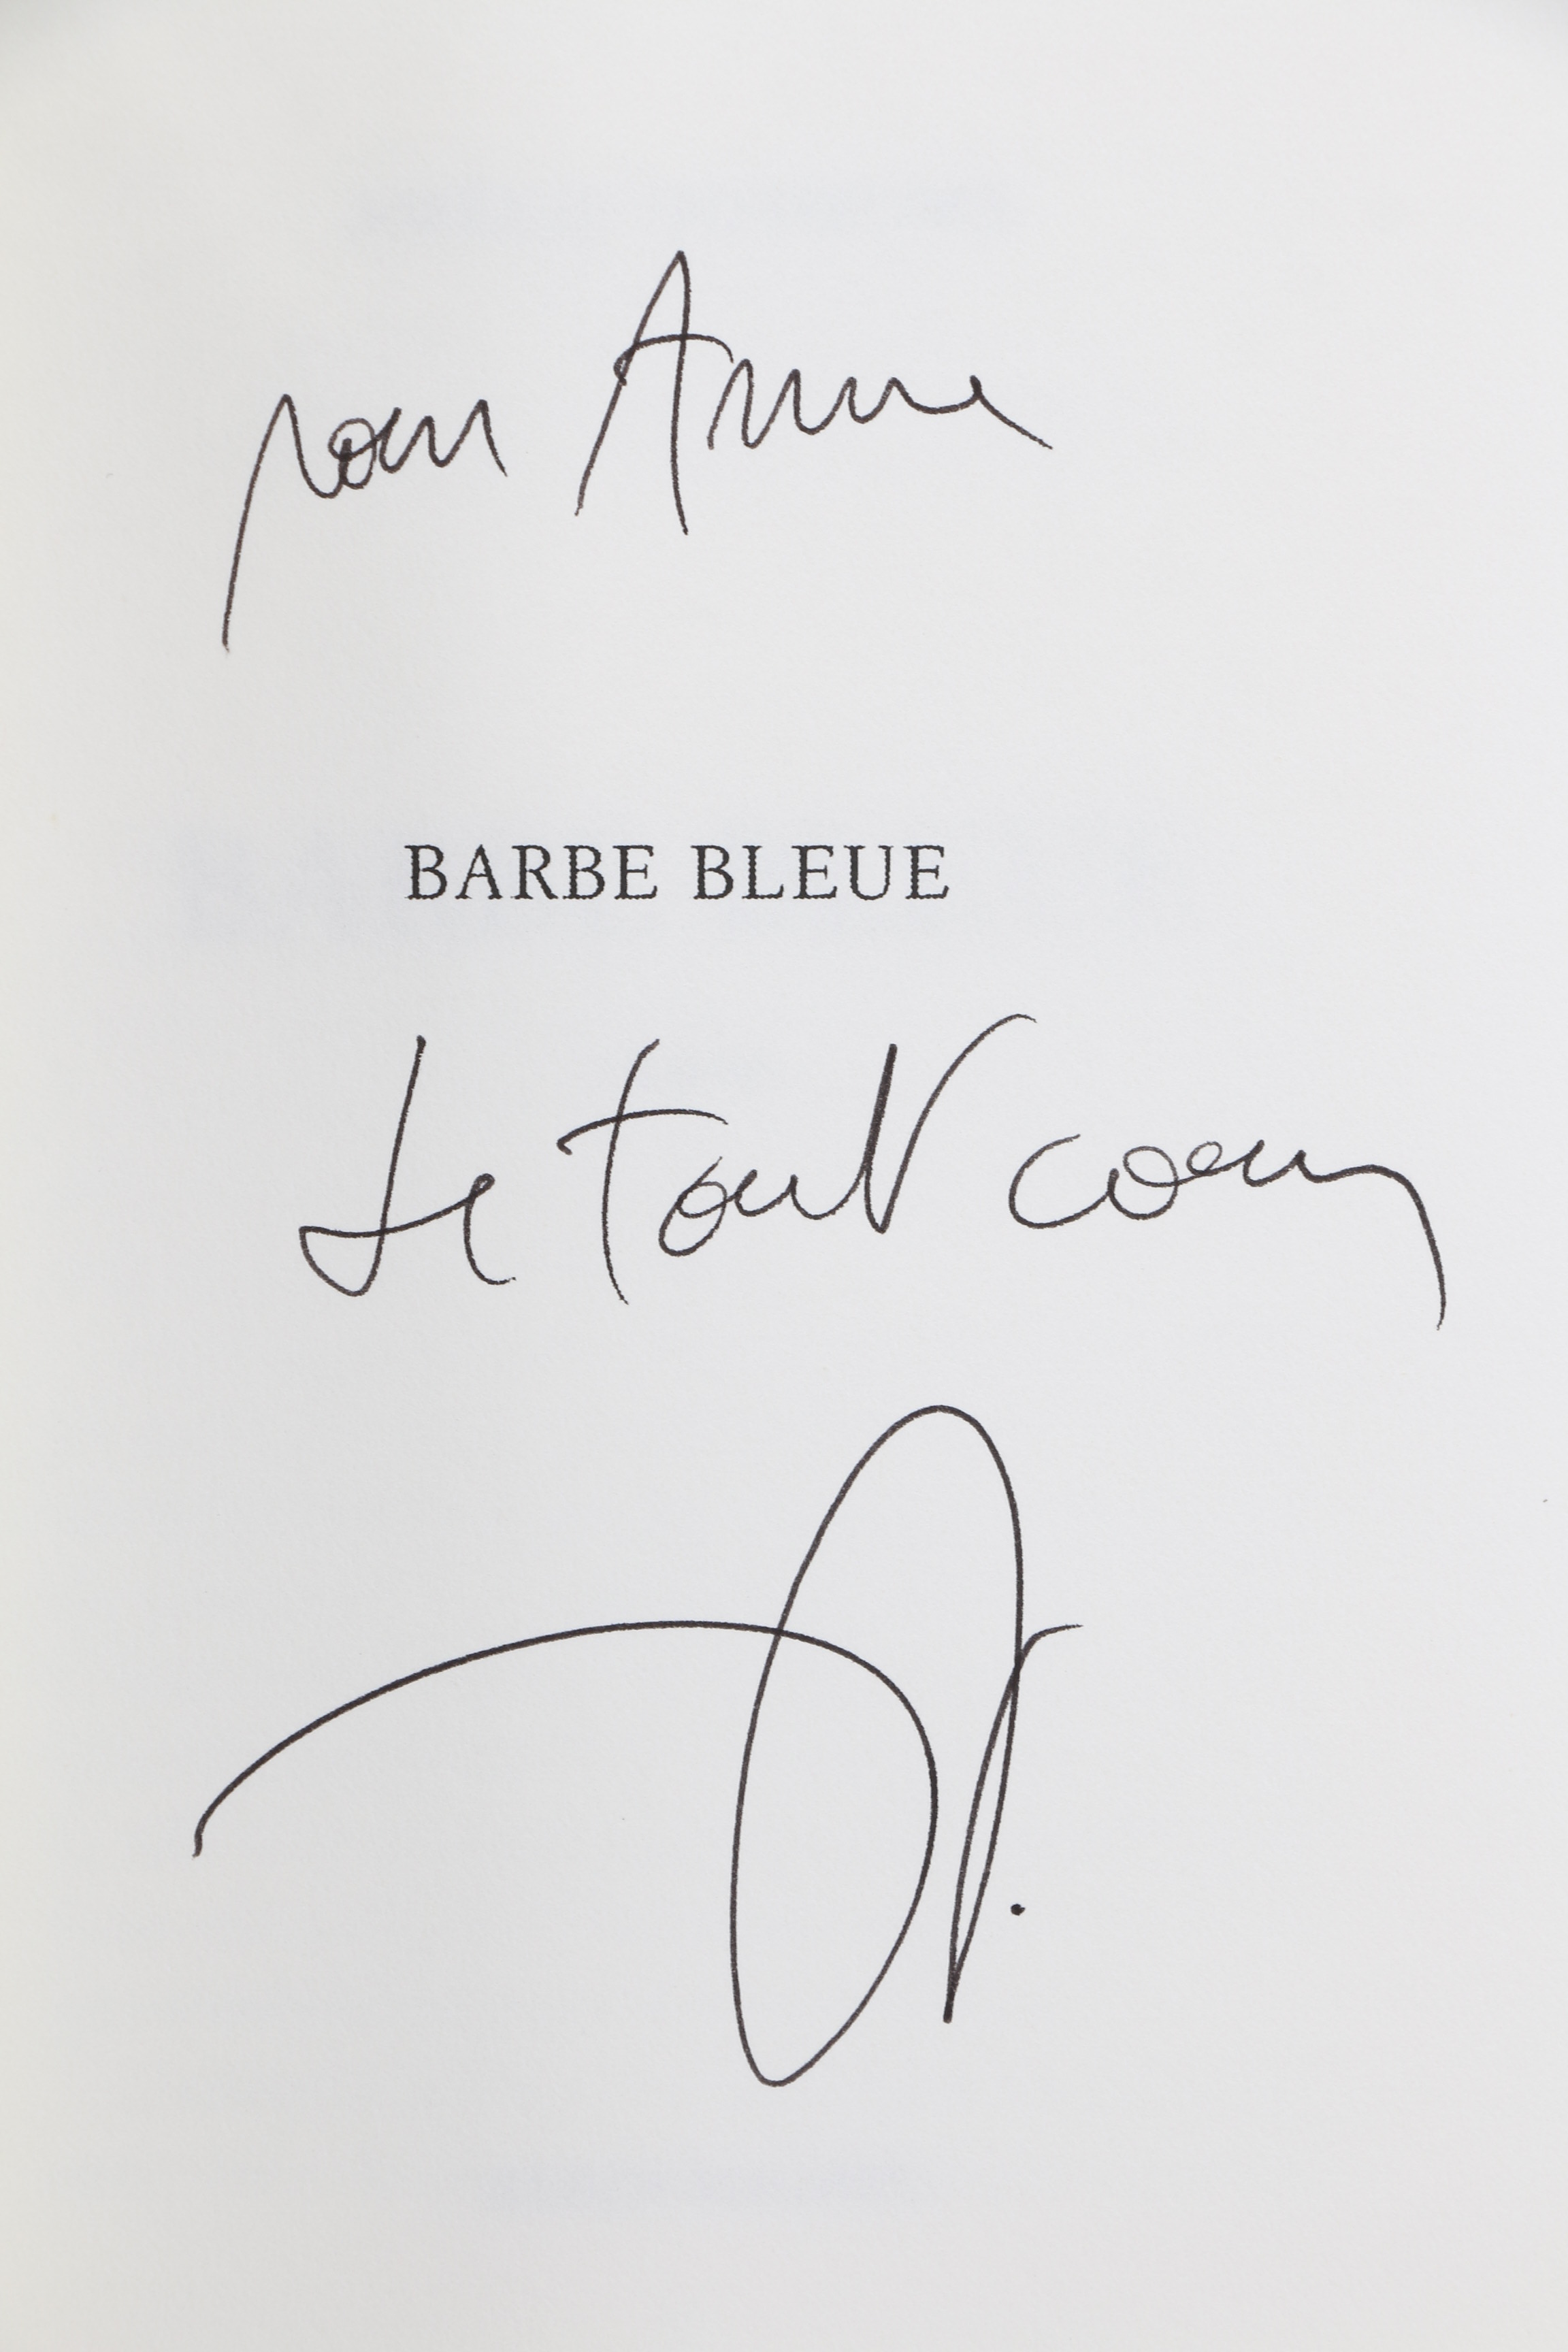 pour Anne
BARBE BLEUE
de tout coeur